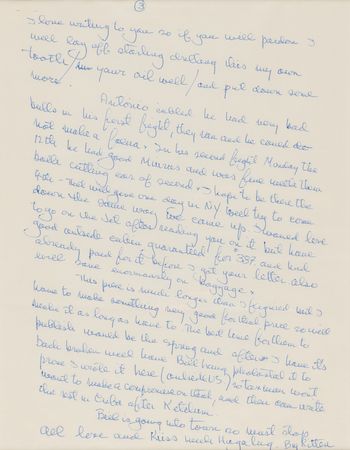 3
I love writing to you so if you will pardon I
will lay off starting drilling this my own
tooth / your oil well / and put down some
more.
Antonio cabled he had very bad
bulls in his first fight, they ran and he could do
not make a faena. In his second fight Monday the
12th he had good Miuras and was fine with them
both cutting ear of second. I hope to be there the
down the same way we came up. I would love
to go on the jet after reading you on it but have
good outside cabin guaranteed for 337 and had
already paid for it before I got your letter also
will save enormously on baggage.
This piece is much longer than I figured but I
have to make something very good for that price so will
make it as long as have to. The best time for them to
publish would be the spring and after I have it's
back broken will have Bill bring photostat it to
prove I wrote it here / outside US / so tax men wont
want to make a compromise on that and then can write
the rest in Cuba after Ketchum.
Bill is going into town so must stop
All love and Kiss much Hugging. Big Kitten